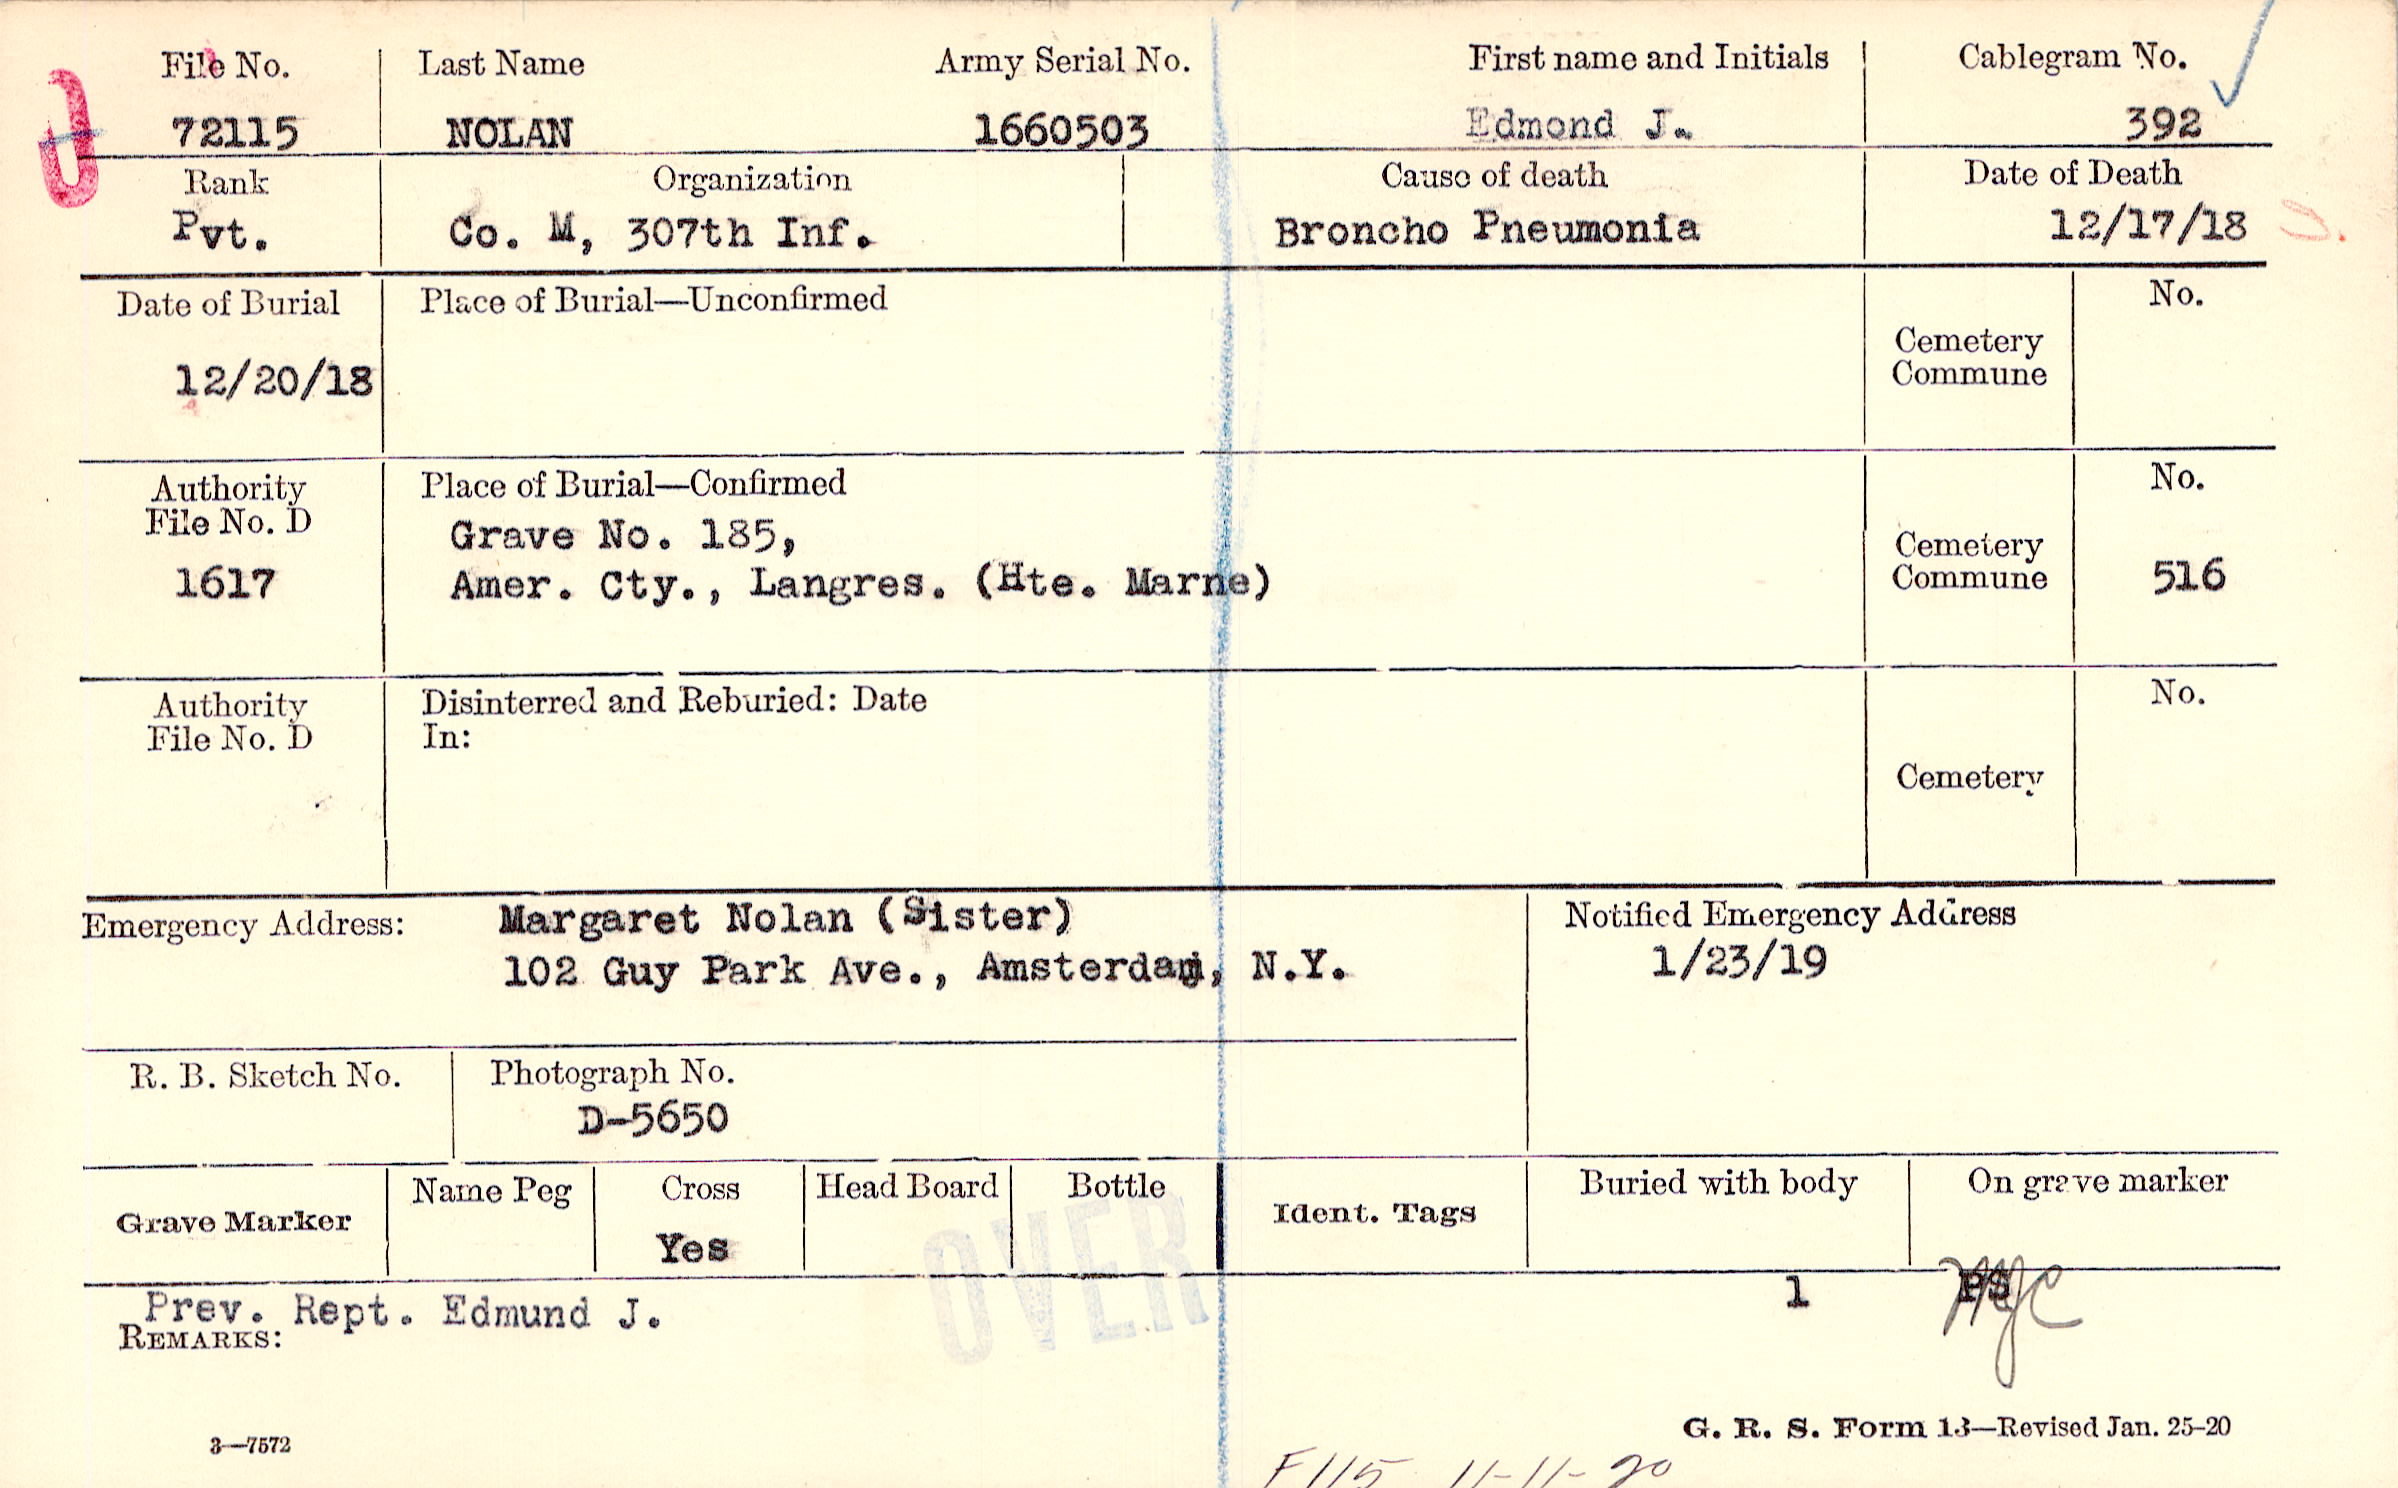 File No. Last Name Army Serial No. First name and Initials Cablegram No.
72115 NOLAN 1660503 Edmond J. 392
Rank Organization Cause of death Date of Death
Pvt. Co. M, 307th Inf. Broncho Pneumonia 12/17/18
Date of Burial Place of Burial—Unconfirmed No.
Cemetery
Commune
12/20/18
Authority Place of Burial—Confirmed No.
File No. D
Grave No. 185,
Cemetery
1617 Amer. Cty., Langres. (Hte. Marne) Commune 516
Authority Disinterred and Reburied: Date No.
File No. D In:
Cemetery
Emergency Address: Margaret Nolan (Sister) Notified Emergency Address
102 Guy Park Ave., Amsterdam, N.Y. 1/23/19
R. B. Sketch No. Photograph No.
D-5650
Grave Marker Name Peg Cross Head Board Bottle Ident. Tags Buried with body On grave marker
Yes
OVER
1 PS
Prev. Rept. Edmund J.
REMARKS:
3—7572
G. R. S. Form 13—Revised Jan. 25-20
F115 11-11-20